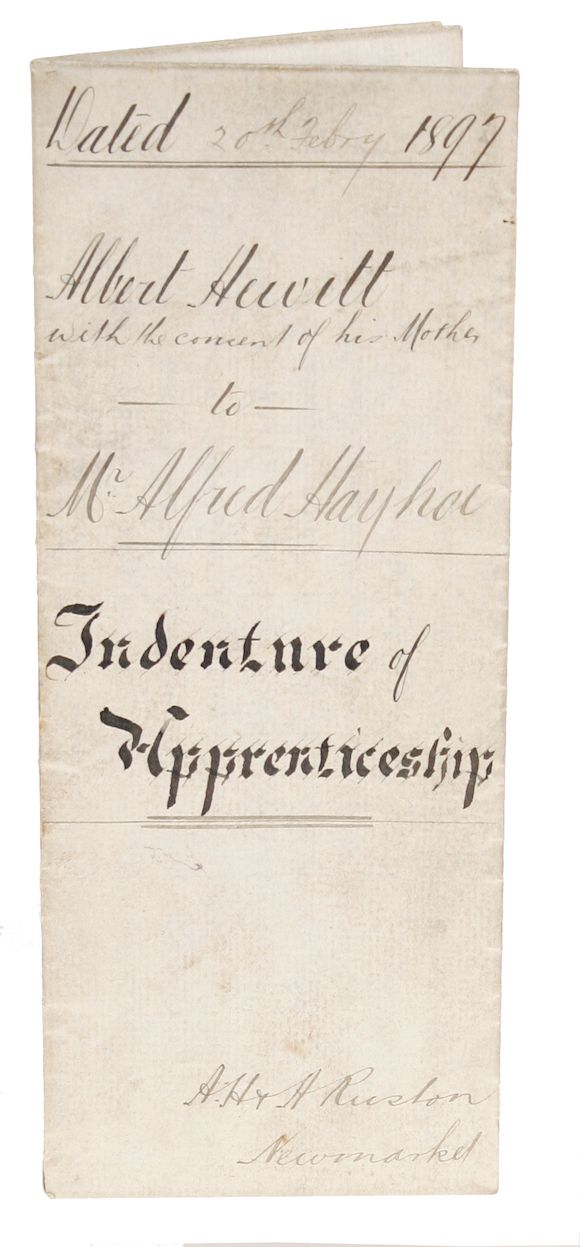 Dated 20th Febry 1897
Albert Hewitt
with the consent of his Mother
— to —
Mr. Alfred Hayhoe
Indenture of
Apprenticeship
A. H & A Ruston
Newmarket